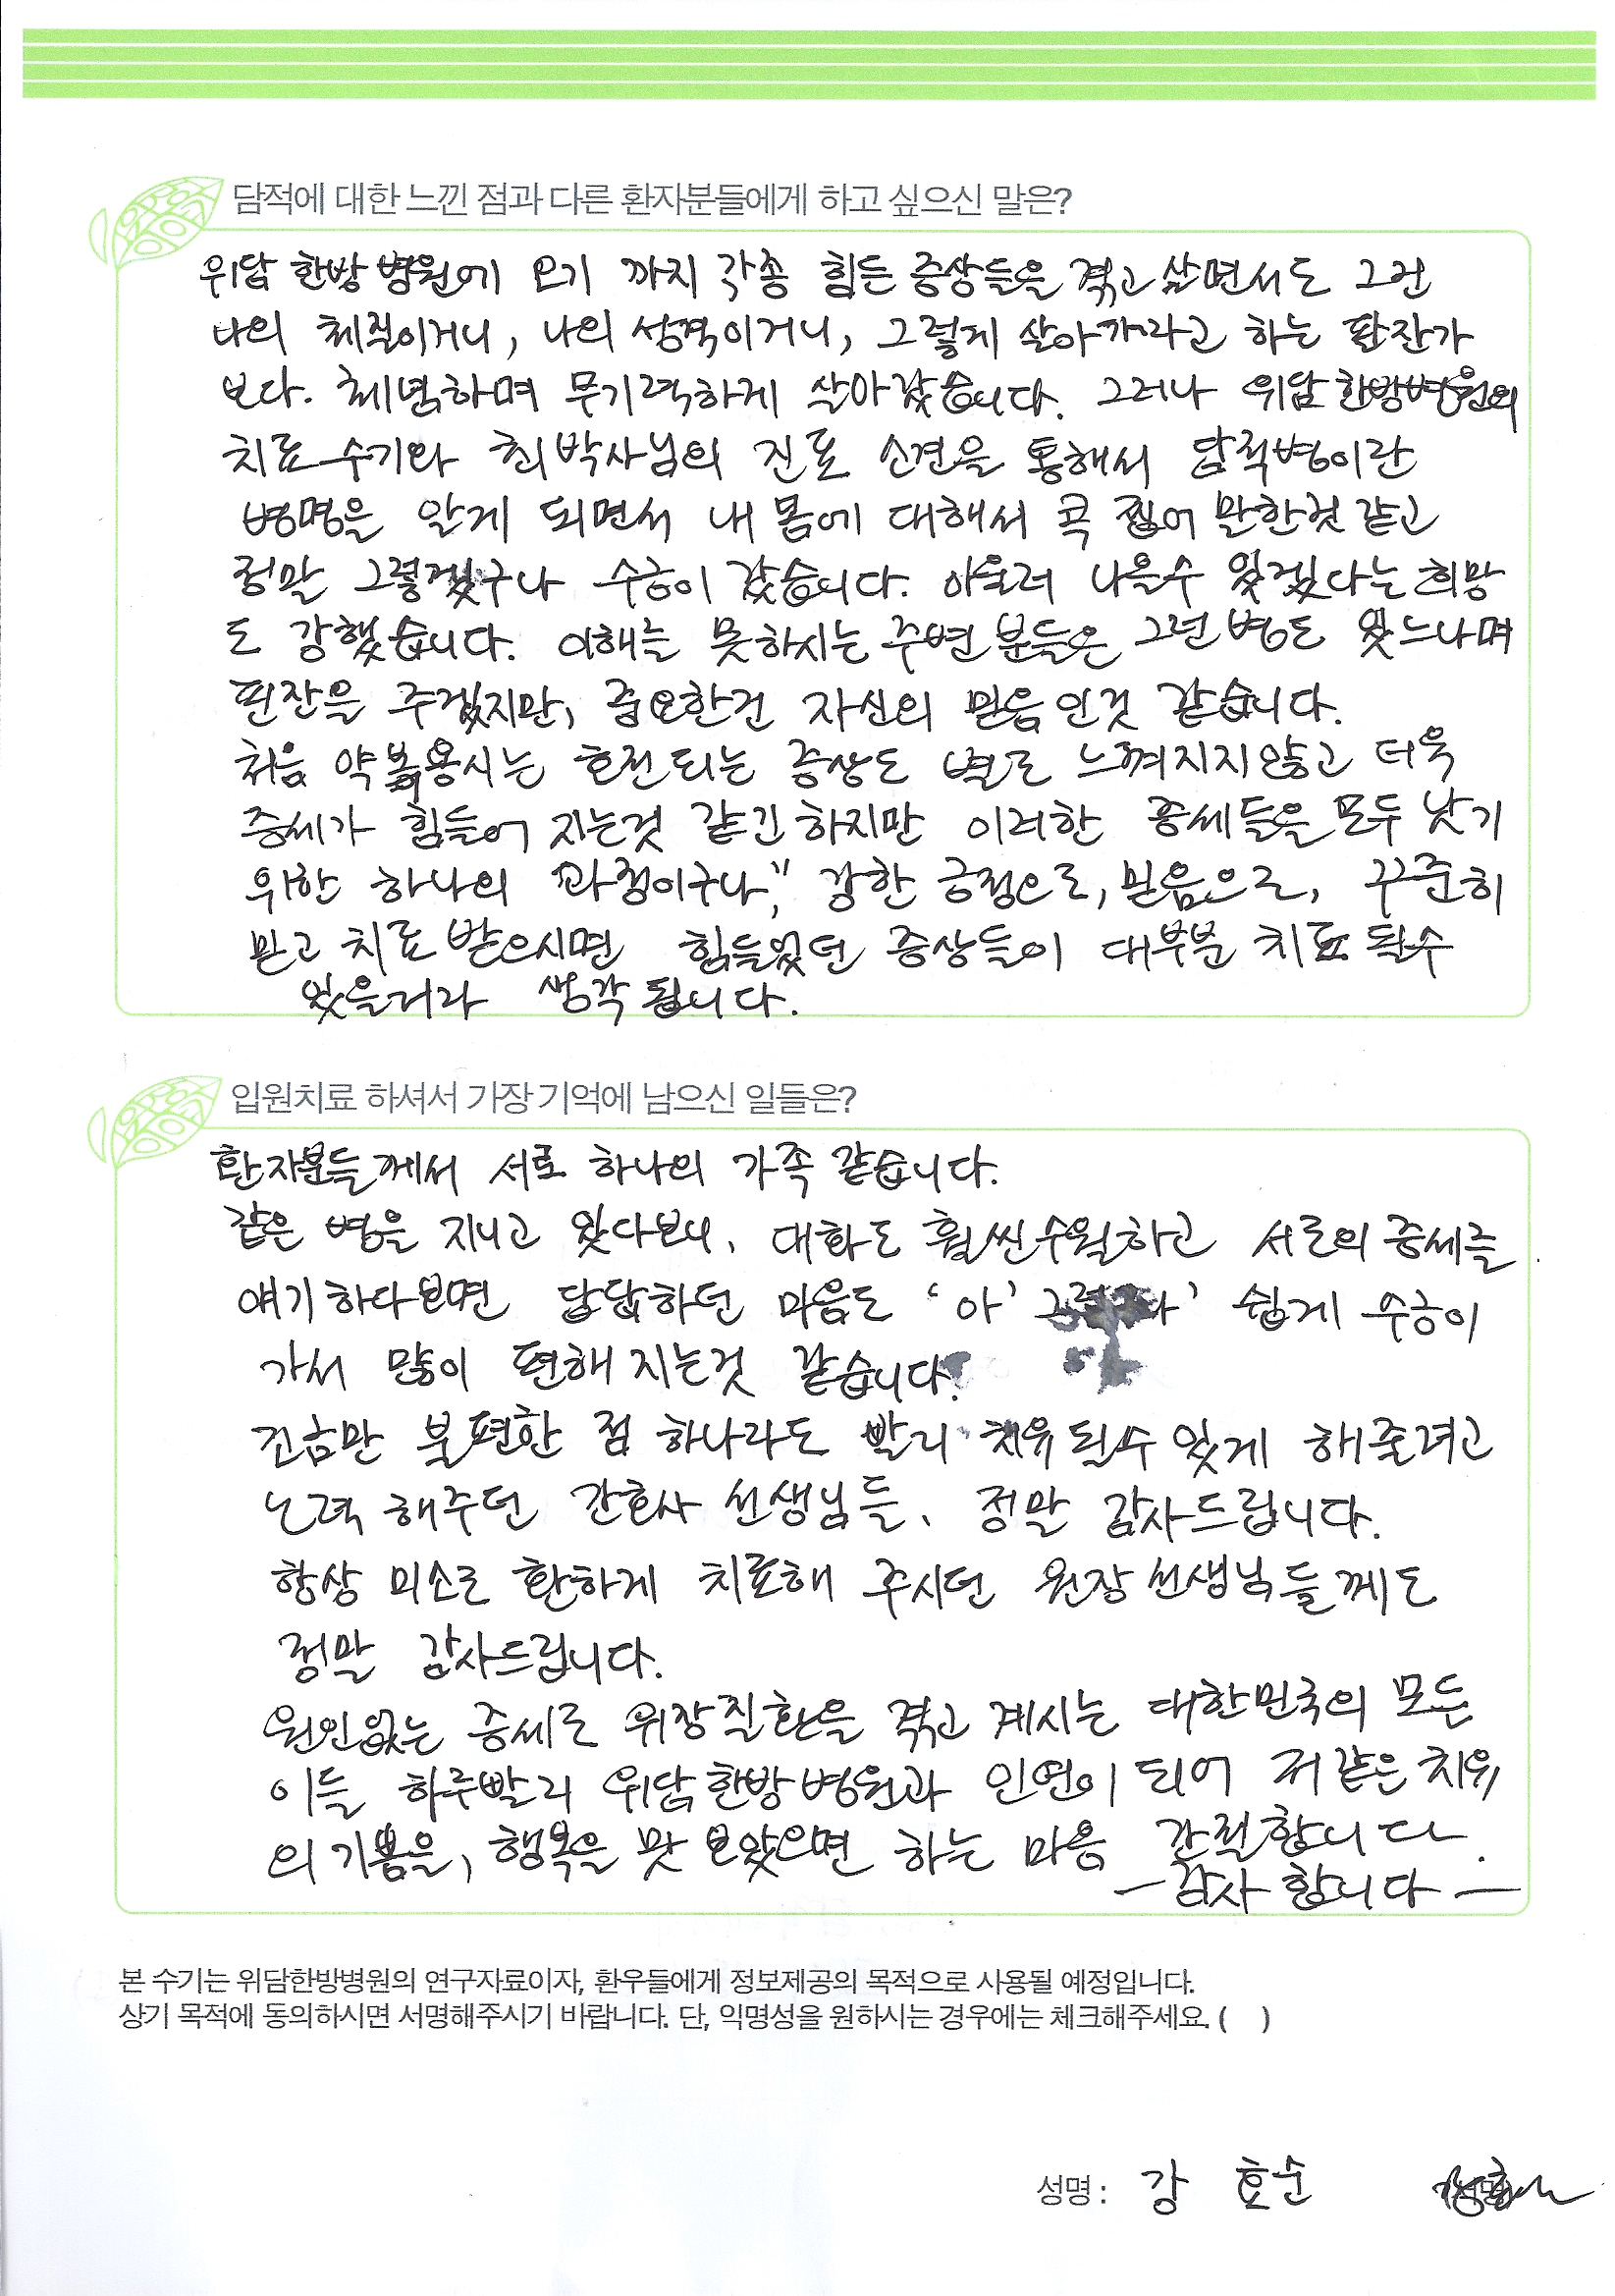 담적에 대한 느낀 점과 다른 환자분들에게 하고 싶으신 말은?
위담 한방병원에 오기 까지 각종 힘든 증상들을 겪고 살면서도 그건
나의 체질이거니, 나의 성격이거니, 그렇게 살아가라고 하는 팔잔가
보다. 체념하며 무기력하게 살아갔습니다. 그러나 위담한방병원의
치료 수기와 최박사님의 진료 소견을 통해서 담적병이란
병명을 알게 되면서 내 몸에 대해서 콕 찝어 말한것 같고
정말 그렇겠구나 수긍이 갔습니다. 아울러 나을수 있겠다는 희망
도 강했습니다. 이해를 못하시는 주변분들은 그런병도 있느냐며
핀잔을 주겠지만, 중요한건 자신의 믿음인것 같습니다.
처음 약복용시는 호전되는 증상도 별로 느껴지지않고 더욱
증세가 힘들어 지는것 같긴 하지만 이러한 증세들을 모두 낫기
위한 하나의 "과정이구나," 강한 긍정으로, 믿음으로, 꾸준히
믿고 치료 받으시면 힘들었던 증상들이 대부분 치료 될수
있을거라 생각 됩니다.
입원치료 하셔서 가장 기억에 남으신 일들은?
환자분들께서 서로 하나의 가족 같습니다.
같은 병을 지니고 있다보니, 대화도 훨씬수월하고 서로의 증세를
얘기하다보면 답답하던 마음도 ‘아’ 쉽게 수긍이
가서 많이 편해 지는것 같습니다.
조금만 불편한 점 하나라도 빨리 치유될수있게 해줄려고
노력 해주던 간호사 선생님들, 정말 감사드립니다.
항상 미소로 환하게 치료해 주시던 원장선생님들께도
정말 감사드립니다.
원인없는 증세로 위장질환을 겪고 계시는 대한민국의 모든
이들 하루빨리 위담한방병원과 인연이 되어 저같은 치유
의 기쁨을, 행복을 맛 보았으면 하는 마음 간절합니다.
— 감사 합니다 —
본 수기는 위담한방병원의 연구자료이자, 환우들에게 정보제공의 목적으로 사용될 예정입니다.
상기 목적에 동의하시면 서명해주시기 바랍니다. 단, 익명성을 원하시는 경우에는 체크해주세요. (   )
성명 : 강 효순